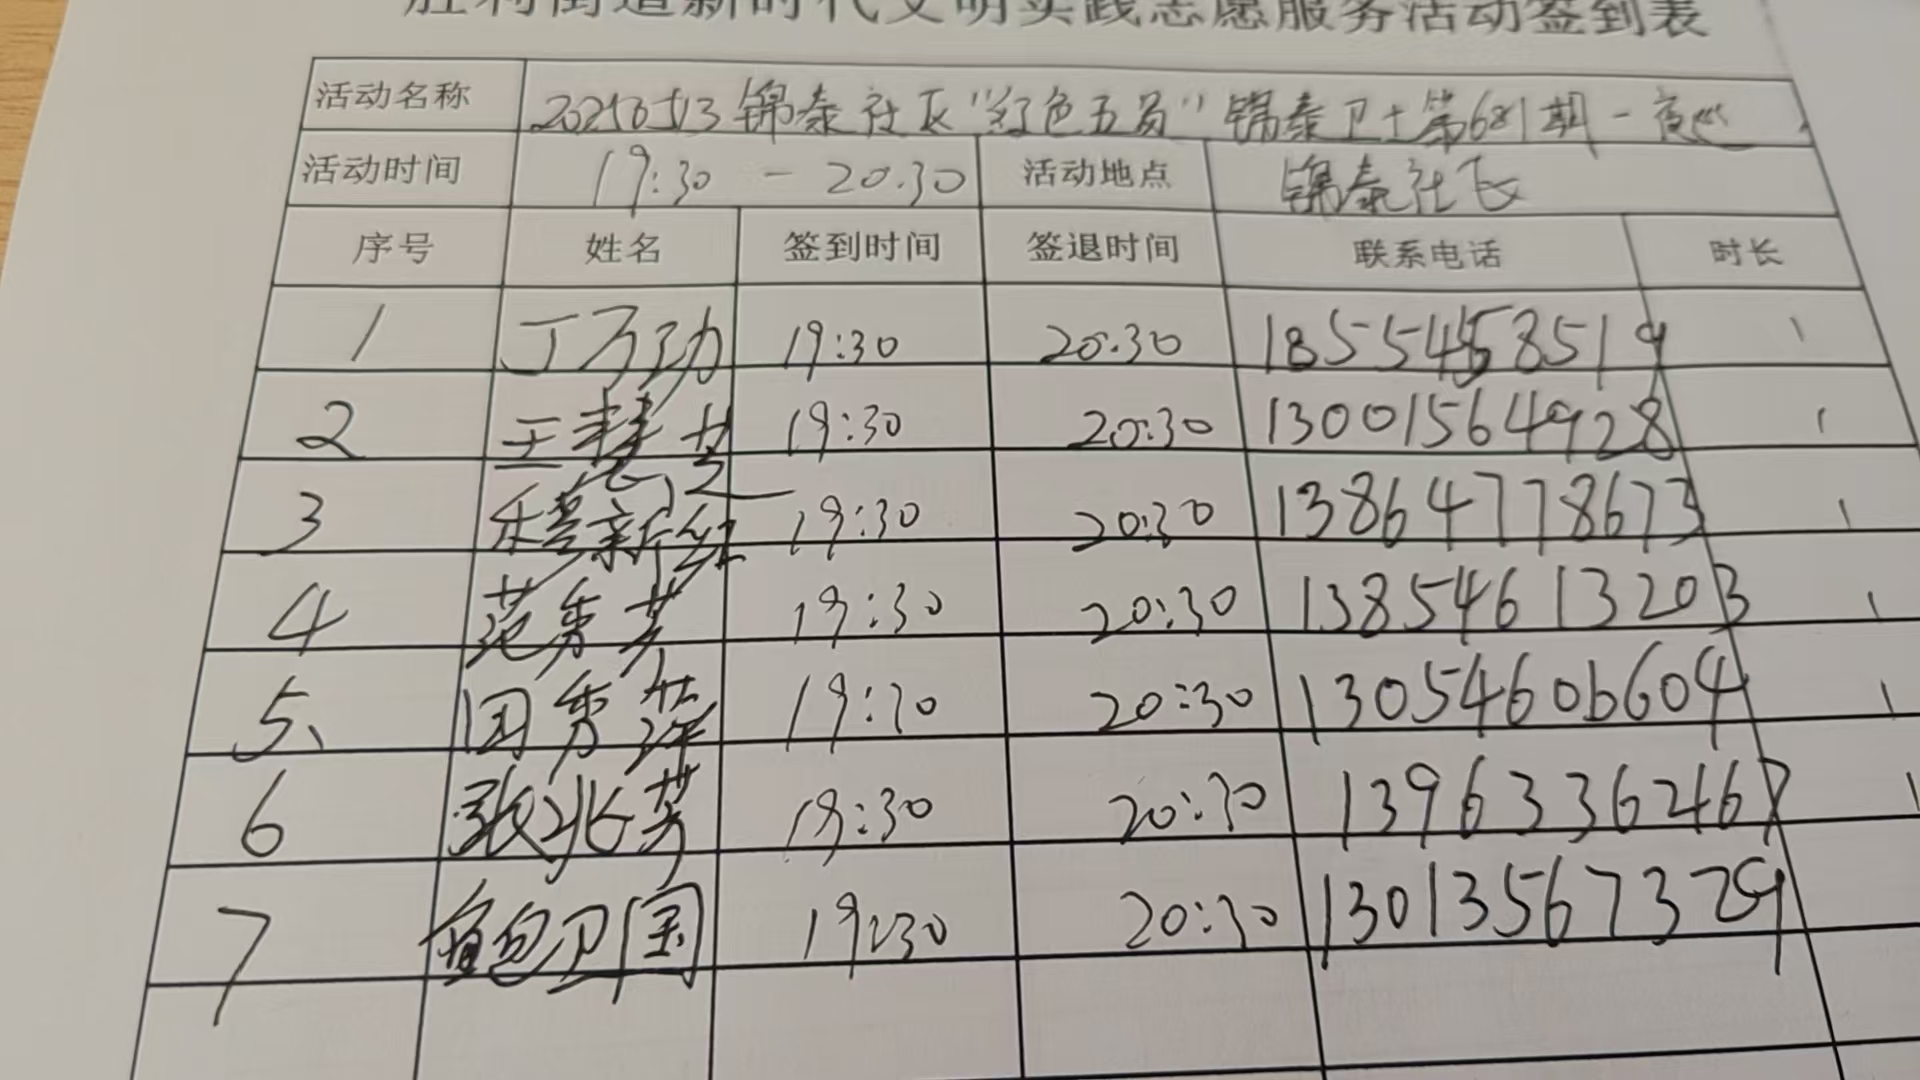 胜利街道新时代文明实践志愿服务活动签到表
活动名称 20250513锦泰社区“红色五员”锦泰卫士第681期-夜巡
活动时间 19:30 - 20.30 活动地点 锦泰社区
序号 姓名 签到时间 签退时间 联系电话 时长
1 丁万功 19:30 20:30 1855458519 1
2 王慧芝 19:30 20:30 13001564928 1
3 新红 19:30 20:30 13864778673 1
4 范秀芳 19:30 20:30 13854613203 1
5、 国秀萍 19:30 20:30 13054606604 1
6 张兆芳 19:30 20:30 13963362467 1
7 鲍卫国 19:30 20:30 13013567329 1